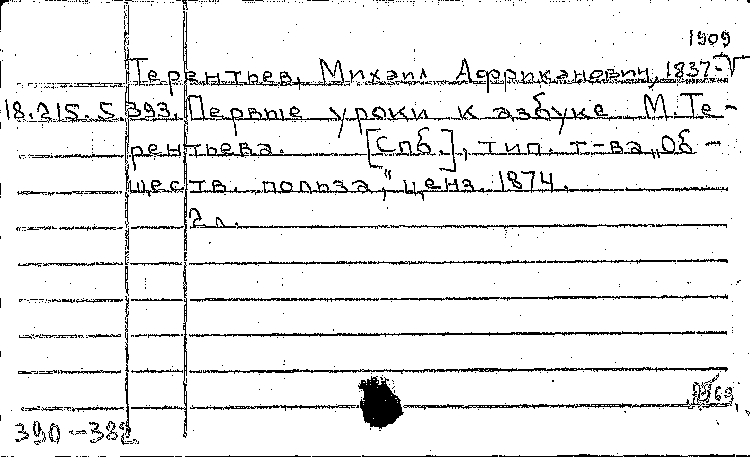 1909
Терентьев, Михаил Африканович, 1837-
18.215.5.393. Первые уроки к азбуке М. Те-
рентьева. [Спб.], тип. т-ва „Об-
ществ. польза," ценз. 1874.
2 л.
390-382